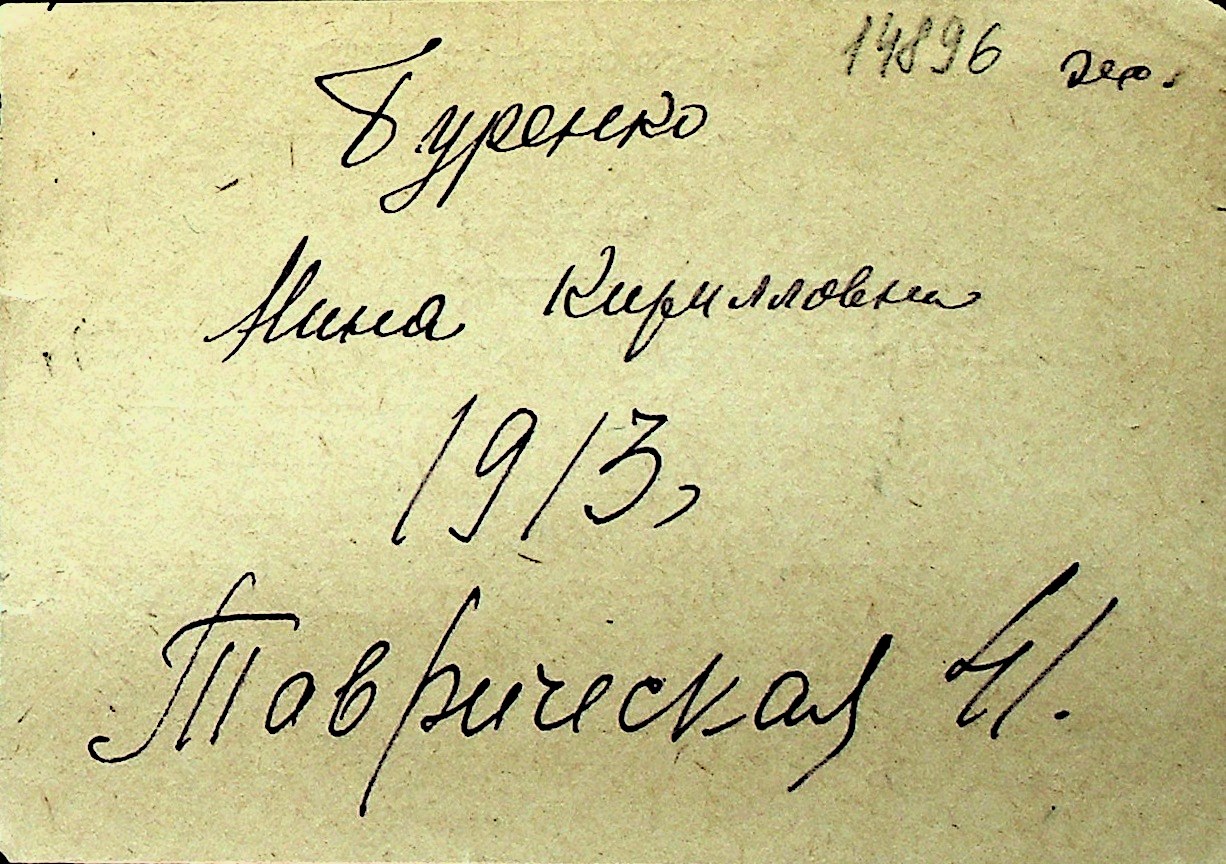 14896
Буренко
Нина Кирилловна
1913,
Таврическая 41.